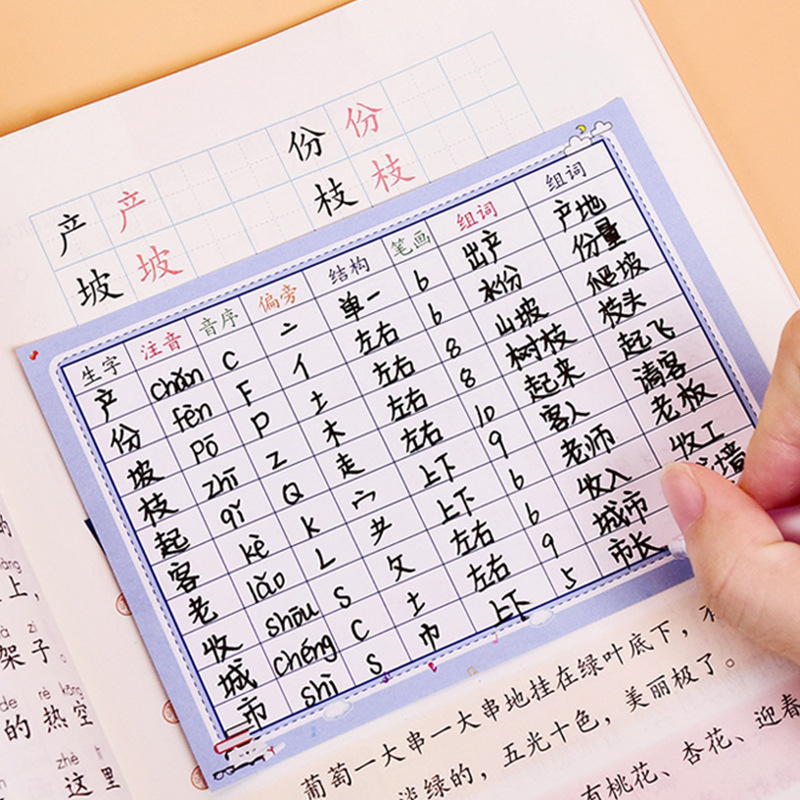 份 份
产 产
枝 枝
坡 坡
生字 注音 音序 偏旁 结构 笔画 组词 组词
产 chǎn C 亠 单一 6 出产 产地
份 fèn F 亻 左右 6 水份 份量
坡 pō P 土 左右 8 山坡 爬坡
枝 zhī Z 木 左右 8 树枝 枝头
起 qǐ Q 走 左右 10 起来 起飞
客 kè K 宀 上下 9 客人 请客
老 lǎo L 耂 上下 6 老师 老板
收 shōu S 攵 左右 6 收入 收工
城 chéng C 土 左右 9 城市 墙
市 shì S 巾 上下 5 市长
的
上，
zi
架子。
de rè kōng
的热空
zhè
这里
葡萄一大串一大串地挂在绿叶底下，
淡绿的，五光十色，美丽极了。
有桃花、杏花、迎春